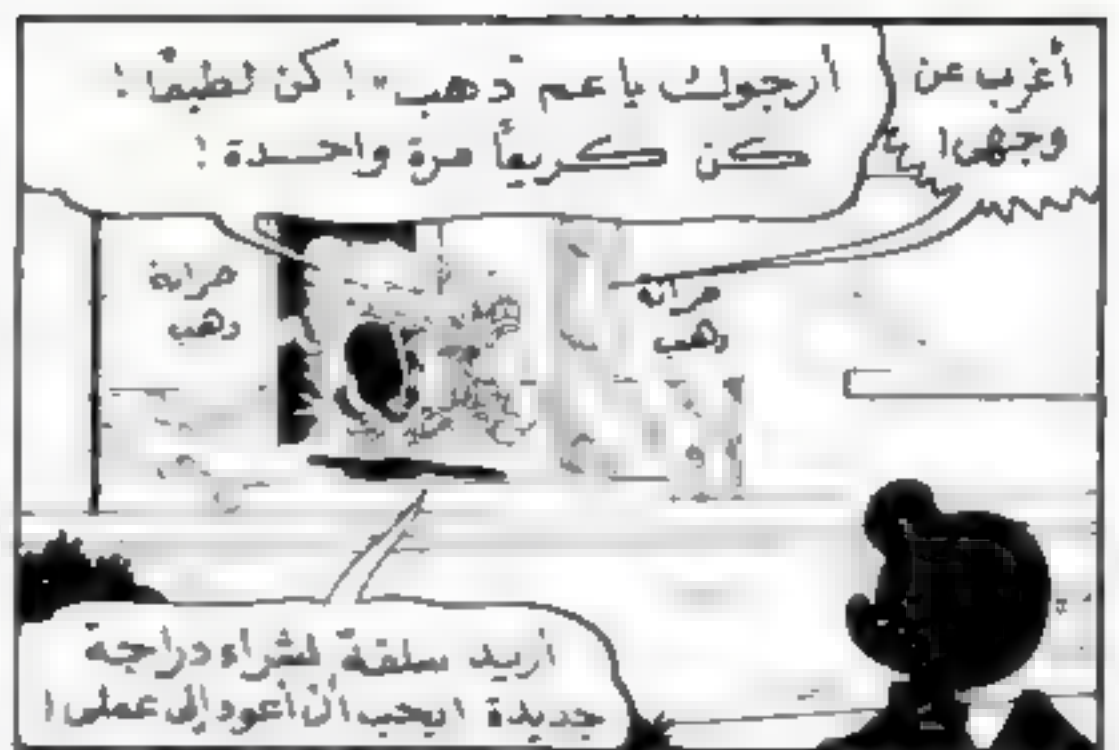 أغرب عن
وجهي!
أرجوك يا عم ذهب! كن لطيفًا!
كن كريمًا مرة واحدة!
خزانة
ذهب
أريد سلفة لشراء دراجة
جديدة! يجب أن أعود إلى عملي!